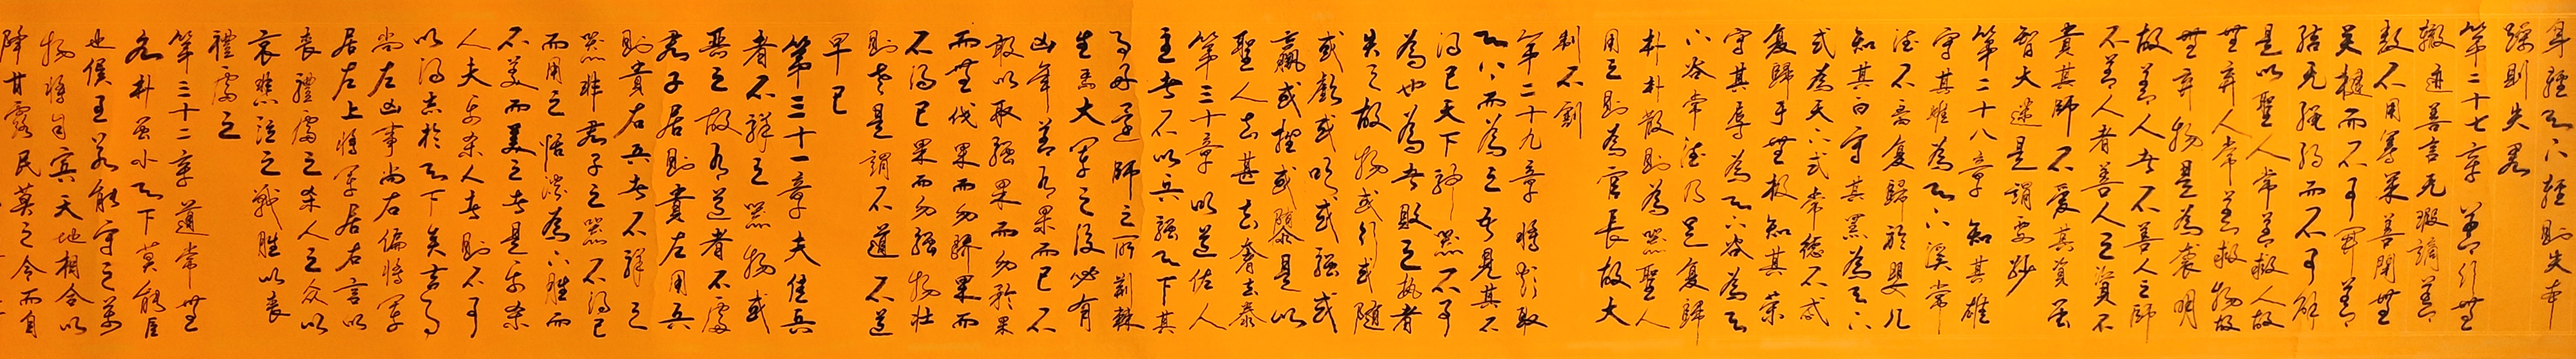 身轻天下轻则失本
躁则失君
第二十七章 善行無
辙迹善言无瑕谪善
数不用筹策善閉無
关楗而不可開善
结无绳约而不可解
是以聖人常善救人故
無弃人常善救物故
無弃物是為袭明
故善人者不善人之師
不善人者善人之資不
贵其師不爱其資虽
智大迷是謂要妙
第二十八章 知其雄
守其雌為天下溪常
德不离复歸於嬰儿
知其白守其黑為天下
式為天下式常德不忒
复歸于無极知其荣
守其辱為天下谷為天
下谷常德乃足复歸
朴朴散則為器聖人
用之則為官長故大
制不割
第二十九章 将欲取
天下而為之吾見其不
得已天下神器不可
為也為者敗之执者
失之故物或行或随
或歔或吹或强或
羸或挫或隳是以
聖人去甚去奢去泰
第三十章 以道佐人
主者不以兵强天下其
事好还師之所荆棘
生焉大军之後必有
凶年善有果而已不
敢以取强果而勿矜果
而無伐果而勿骄果而
不得已果而勿强物壮
則老是謂不道不道
早已
第三十一章 夫佳兵
者不祥之器物或
恶之故有道者不處
君子居則貴左用兵
則貴右兵者不祥之
器非君子之器不得已
而用之恬淡為上胜而
不美而美之者是乐杀
人夫乐杀人者則不可
以得志於天下矣吉事
尚左凶事尚右偏将军
居左上将军居右言以
丧禮處之杀人之众以
哀悲泣之戰胜以丧
禮處之
第三十二章 道常無
名朴虽小天下莫能臣
也侯王若能守之萬
物将自宾天地相合以
降甘露民莫之令而自